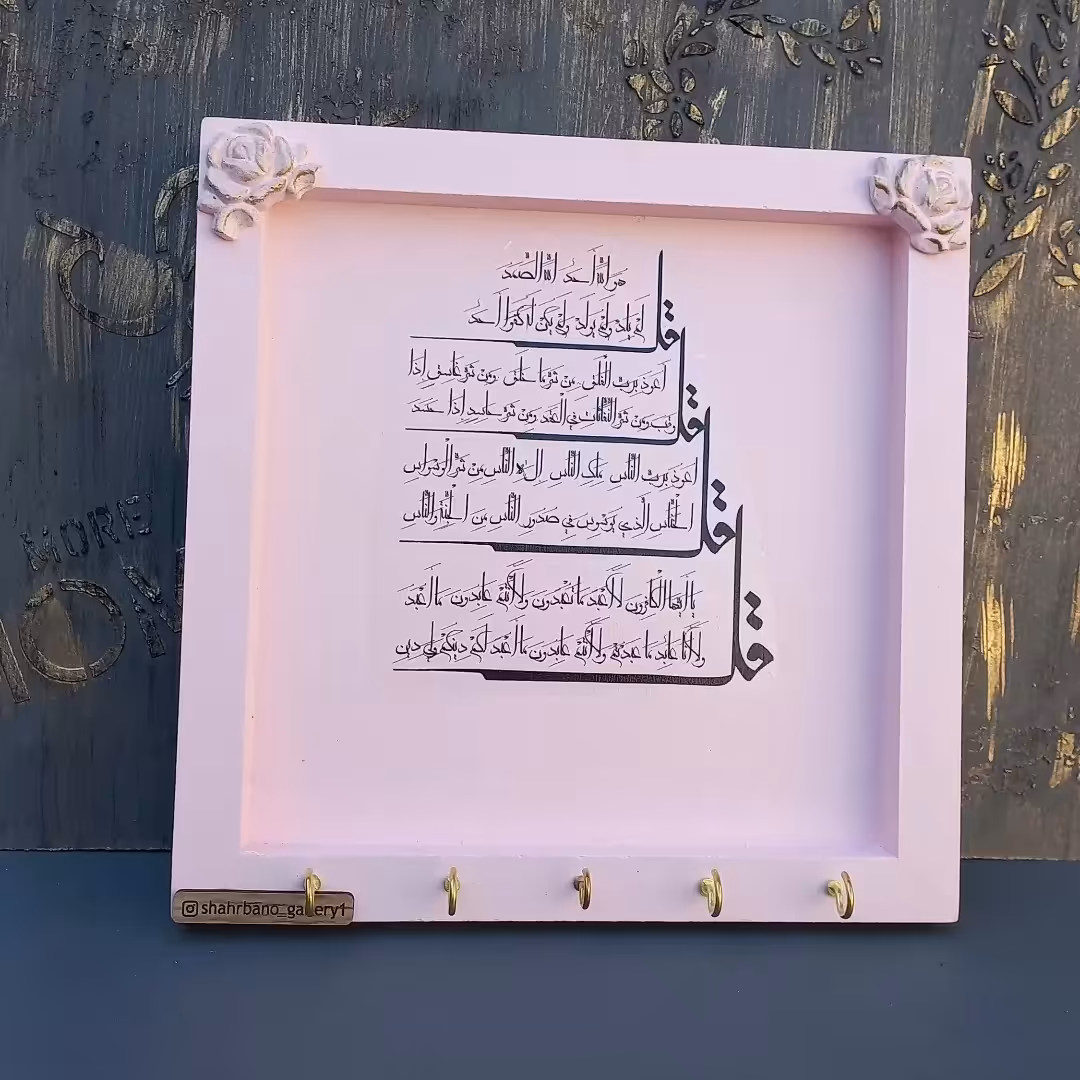 قل هو الله أحد الله الصمد
لم يلد ولم يولد ولم يكن له كفوا أحد
قل أعوذ برب الفلق من شر ما خلق ومن شر غاسق إذا
وقب ومن شر النفاثات في العقد ومن شر حاسد إذا حسد
قل أعوذ برب الناس ملك الناس إله الناس من شر الوسواس
الخناس الذي يوسوس في صدور الناس من الجنة والناس
قل يا أيها الكافرون لا أعبد ما تعبدون ولا أنتم عابدون ما أعبد
ولا أنا عابد ما عبدتم ولا أنتم عابدون ما أعبد لكم دينكم ولي دين
MORE
shahrbano_gallery1